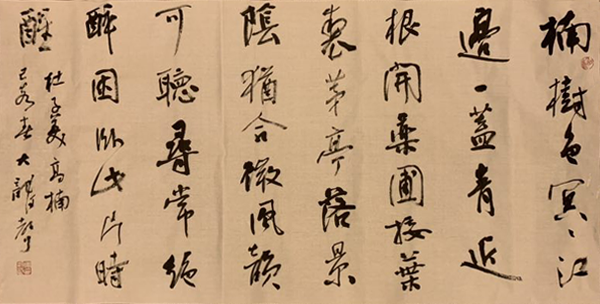 楠樹色冥〻江
邊一蓋青近
根開藥圃接葉
製茅亭落景
陰猶合微風韻
可聽尋常絕
醉困卧此片時
醒
杜子美高楠
己亥春大